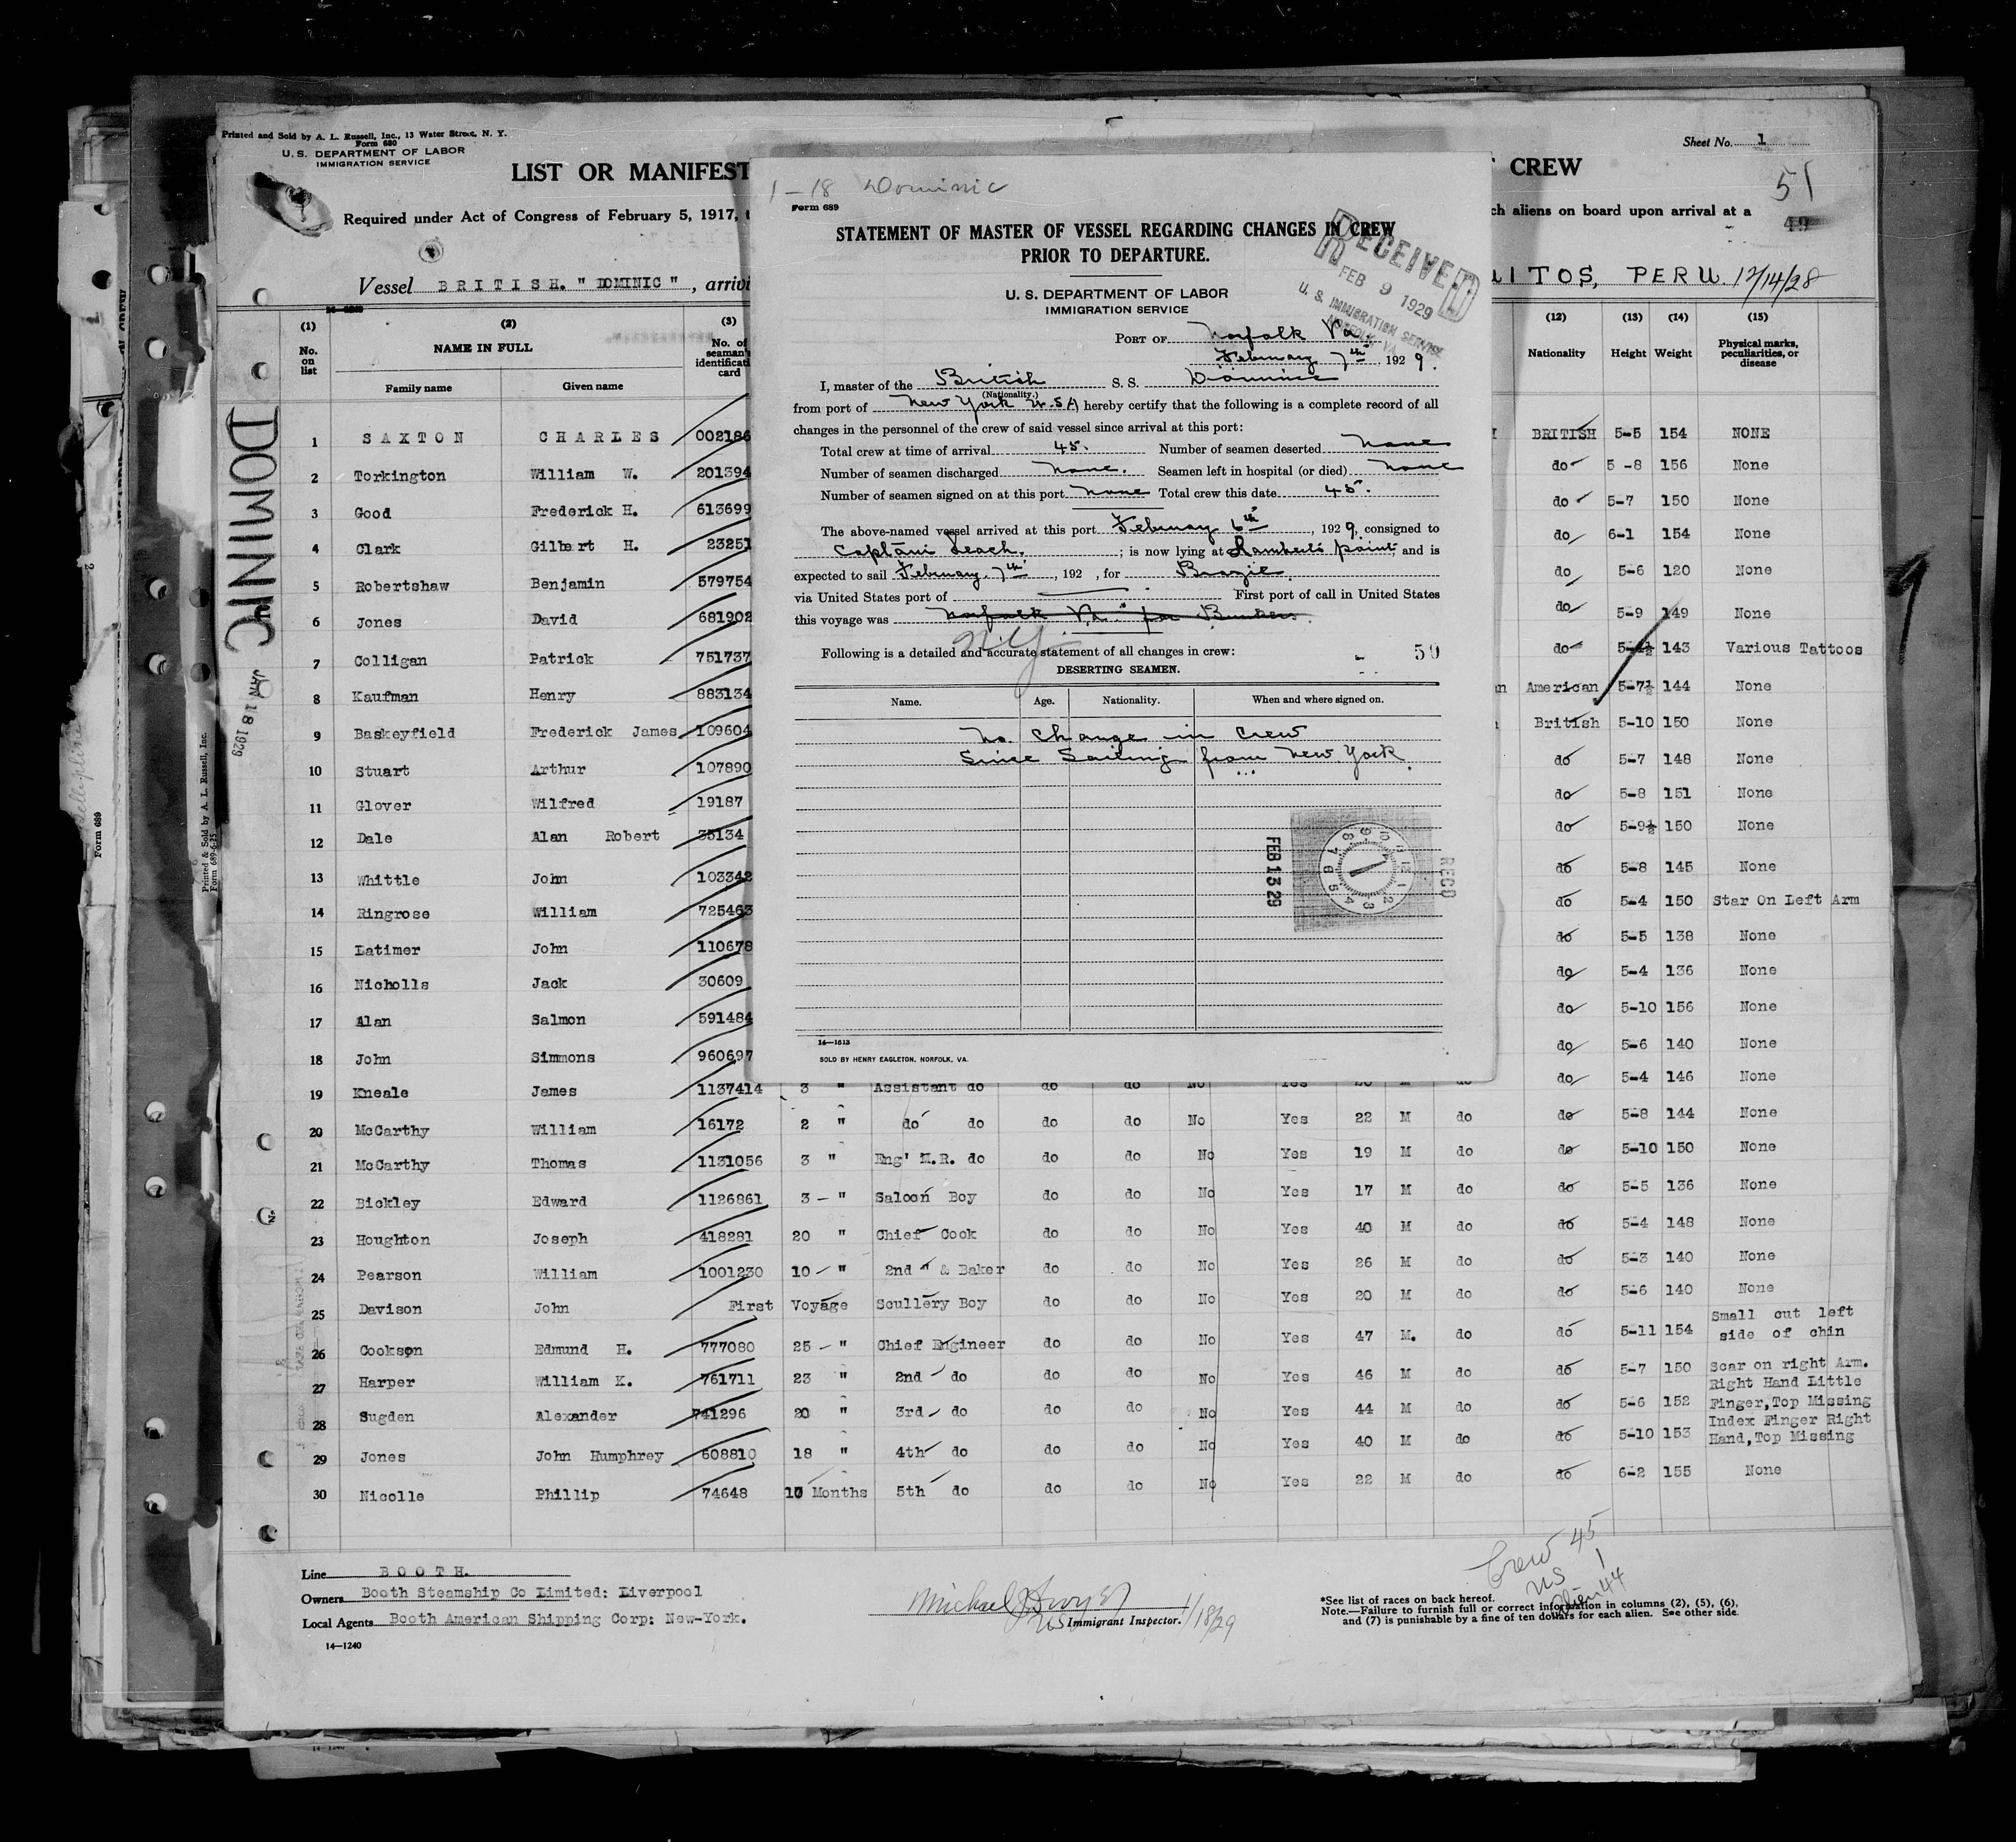 Printed and Sold by A. L. Russell, Inc., 13 Water Street, N. Y.
Form 680
U. S. DEPARTMENT OF LABOR
IMMIGRATION SERVICE
Sheet No. 1
51
49
LIST OR MANIFEST
CREW
Required under Act of Congress of February 5, 1917,
ch aliens on board upon arrival at a
Vessel BRITISH. "DOMINIC", arrivi
UITOS, PERU. 12/14/28
DOMINIC
JAN 18 1929
(1) (2) (3) (12) (13) (14) (15)
No. on list NAME IN FULL Family name Given name No. of seaman's identification card Nationality Height Weight Physical marks, peculiarities, or disease
1 SAXTON CHARLES 002186 BRITISH 5-5 154 NONE
2 Torkington William W. 201394 do 5-8 156 None
3 Good Frederick H. 613699 do 5-7 150 None
4 Clark Gilbert H. 23251 do 6-1 154 None
5 Robertshaw Benjamin 579754 do 5-6 120 None
6 Jones David 681902 do 5-9 149 None
7 Colligan Patrick 751737 do 5-4½ 143 Various Tattoos
8 Kaufman Henry 883134 American 5-7½ 144 None
9 Baskeyfield Frederick James 109604 British 5-10 150 None
10 Stuart Arthur 107890 do 5-7 148 None
11 Glover Wilfred 19187 do 5-8 151 None
12 Dale Alan Robert 35134 do 5-9½ 150 None
13 Whittle John 103342 do 5-8 145 None
14 Ringrose William 725463 do 5-4 150 Star On Left Arm
15 Latimer John 110678 do 5-5 138 None
16 Nicholls Jack 30609 do 5-4 136 None
17 Alan Salmon 591484 do 5-10 156 None
18 John Simmons 960697 do 5-6 140 None
19 Kneale James 1137414 3 " Assistant do do do No Yes 20 M do do 5-4 146 None
20 McCarthy William 16172 2 " do do do do No Yes 22 M do do 5-8 144 None
21 McCarthy Thomas 1131056 3 " Eng' M.R. do do do No Yes 19 M do do 5-10 150 None
22 Bickley Edward 1126861 3 - " Saloon Boy do do No Yes 17 M do do 5-5 136 None
23 Houghton Joseph 418281 20 " Chief Cook do do No Yes 40 M do do 5-4 148 None
24 Pearson William 1001230 10 - " 2nd " & Baker do do No Yes 26 M do do 5-3 140 None
25 Davison John First Voyage Scullery Boy do do No Yes 20 M do do 5-6 140 None
26 Cookson Edmund H. 777080 25 - " Chief Engineer do do No Yes 47 M. do do 5-11 154 Small cut left side of chin
27 Harper William K. 761711 23 " 2nd do do do No Yes 46 M do do 5-7 150 Scar on right Arm.
28 Sugden Alexander 741296 20 " 3rd do do do No Yes 44 M do do 5-6 152 Right Hand Little Finger,Top Missing
29 Jones John Humphrey 608810 18 " 4th do do do No Yes 40 M do do 5-10 153 Index Finger Right Hand,Top Missing
30 Nicolle Phillip 74648 10 Months 5th do do do No Yes 22 M do do 6-2 155 None
Line BOOTH.
Owners Booth Steamship Co Limited: Liverpool
Local Agents Booth American Shipping Corp: New-York.
14-1240
Michael J Dwyer
US Immigrant Inspector. 1/18/29
Crew 45
US 1
Alien 44
*See list of races on back hereof.
Note.—Failure to furnish full or correct information in columns (2), (5), (6),
and (7) is punishable by a fine of ten dollars for each alien. See other side.
1-18 Dominic
Form 689
STATEMENT OF MASTER OF VESSEL REGARDING CHANGES IN CREW
PRIOR TO DEPARTURE.
RECEIVED
FEB 9 1929
U. S. IMMIGRATION SERVICE
NORFOLK, VA.
U. S. DEPARTMENT OF LABOR
IMMIGRATION SERVICE
PORT OF Norfolk Va
February 7th 1929.
I, master of the British S. S. Dominic
(Nationality.)
from port of New York U.S.A hereby certify that the following is a complete record of all
changes in the personnel of the crew of said vessel since arrival at this port:
Total crew at time of arrival 45. Number of seamen deserted None
Number of seamen discharged None. Seamen left in hospital (or died) None
Number of seamen signed on at this port None Total crew this date 45.
The above-named vessel arrived at this port February 6th, 1929, consigned to
Captain Leach.; is now lying at Lamberts point, and is
expected to sail February 7th, 192 , for Brazil.
via United States port of First port of call in United States
this voyage was Norfolk Va. for Bunkers.
N.Y
Following is a detailed and accurate statement of all changes in crew: 50
DESERTING SEAMEN.
Name. Age. Nationality. When and where signed on.
No. Change in Crew
Since Sailing from New York.
FEB 13 29
RECD
14-1613
SOLD BY HENRY EAGLETON, NORFOLK, VA.
Form 689
Printed & Sold by A. L. Russell, Inc.
Form 689-6-25
14-1240